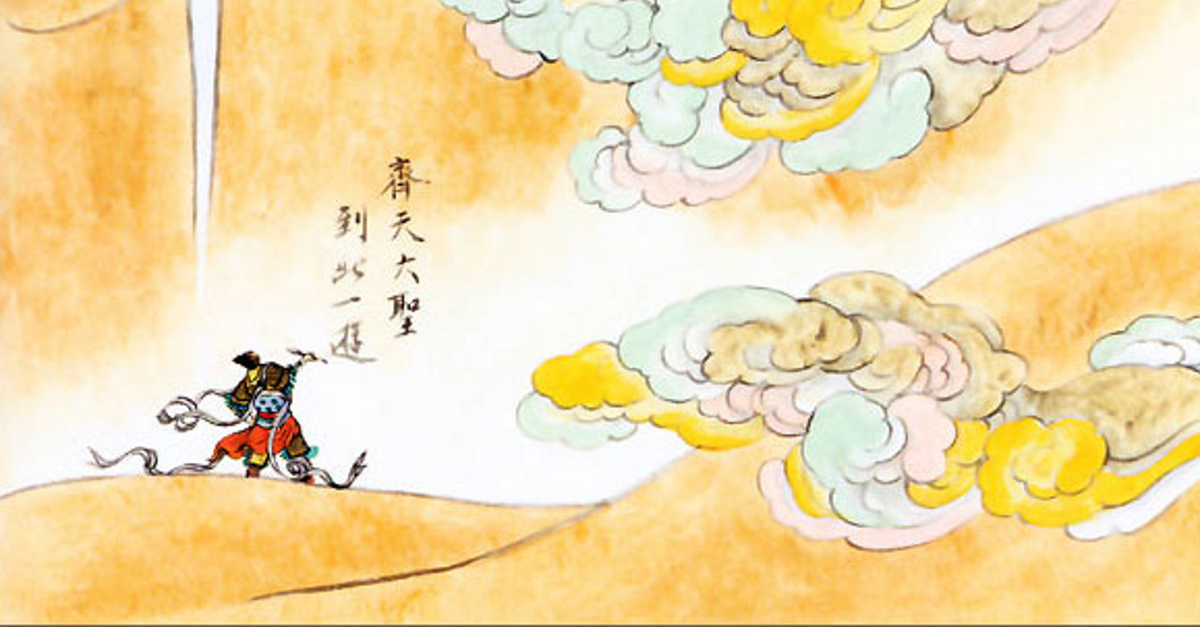 齊天大聖
到此一遊